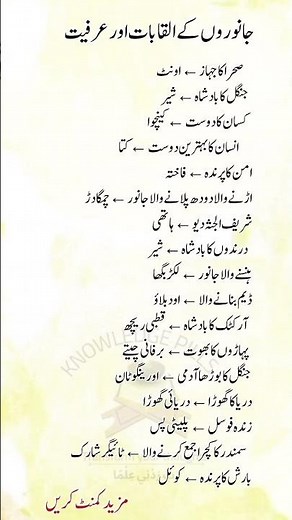 جانوروں کے القابات اور عرفیت
صحرا کا جہاز ← اونٹ
جنگل کا بادشاہ ← شیر
کسان کا دوست ← کینچوا
انسان کا بہترین دوست ← کتا
امن کا پرندہ ← فاختہ
اڑنے والا دودھ پلانے والا جانور ← چمگادڑ
شریف الجثہ دیو ← ہاتھی
درندوں کا بادشاہ ← شیر
ہنسنے والا جانور ← لکڑبگھا
ڈیم بنانے والا ← اودبلاؤ
آرکٹک کا بادشاہ ← قطبی ریچھ
پہاڑوں کا بھوت ← برفانی چیتے
جنگل کا بوڑھا آدمی ← اورینگوٹان
دریا کا گھوڑا ← دریائی گھوڑا
زندہ فوسل ← پلیٹی پس
سمندر کا کچرا جمع کرنے والا ← ٹائیگر شارک
بارش کا پرندہ ← کوئل
مزید کمنٹ کریں